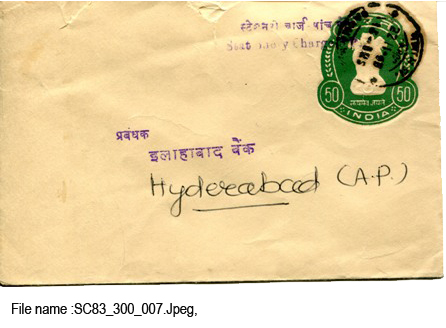 स्टेशनरी चार्ज पांच
Stationery Charge
50 50
सत्यमेव जयते
INDIA
प्रबंधक
इलाहाबाद बैंक
Hyderabad (A.P.)
File name :SC83_300_007.Jpeg,